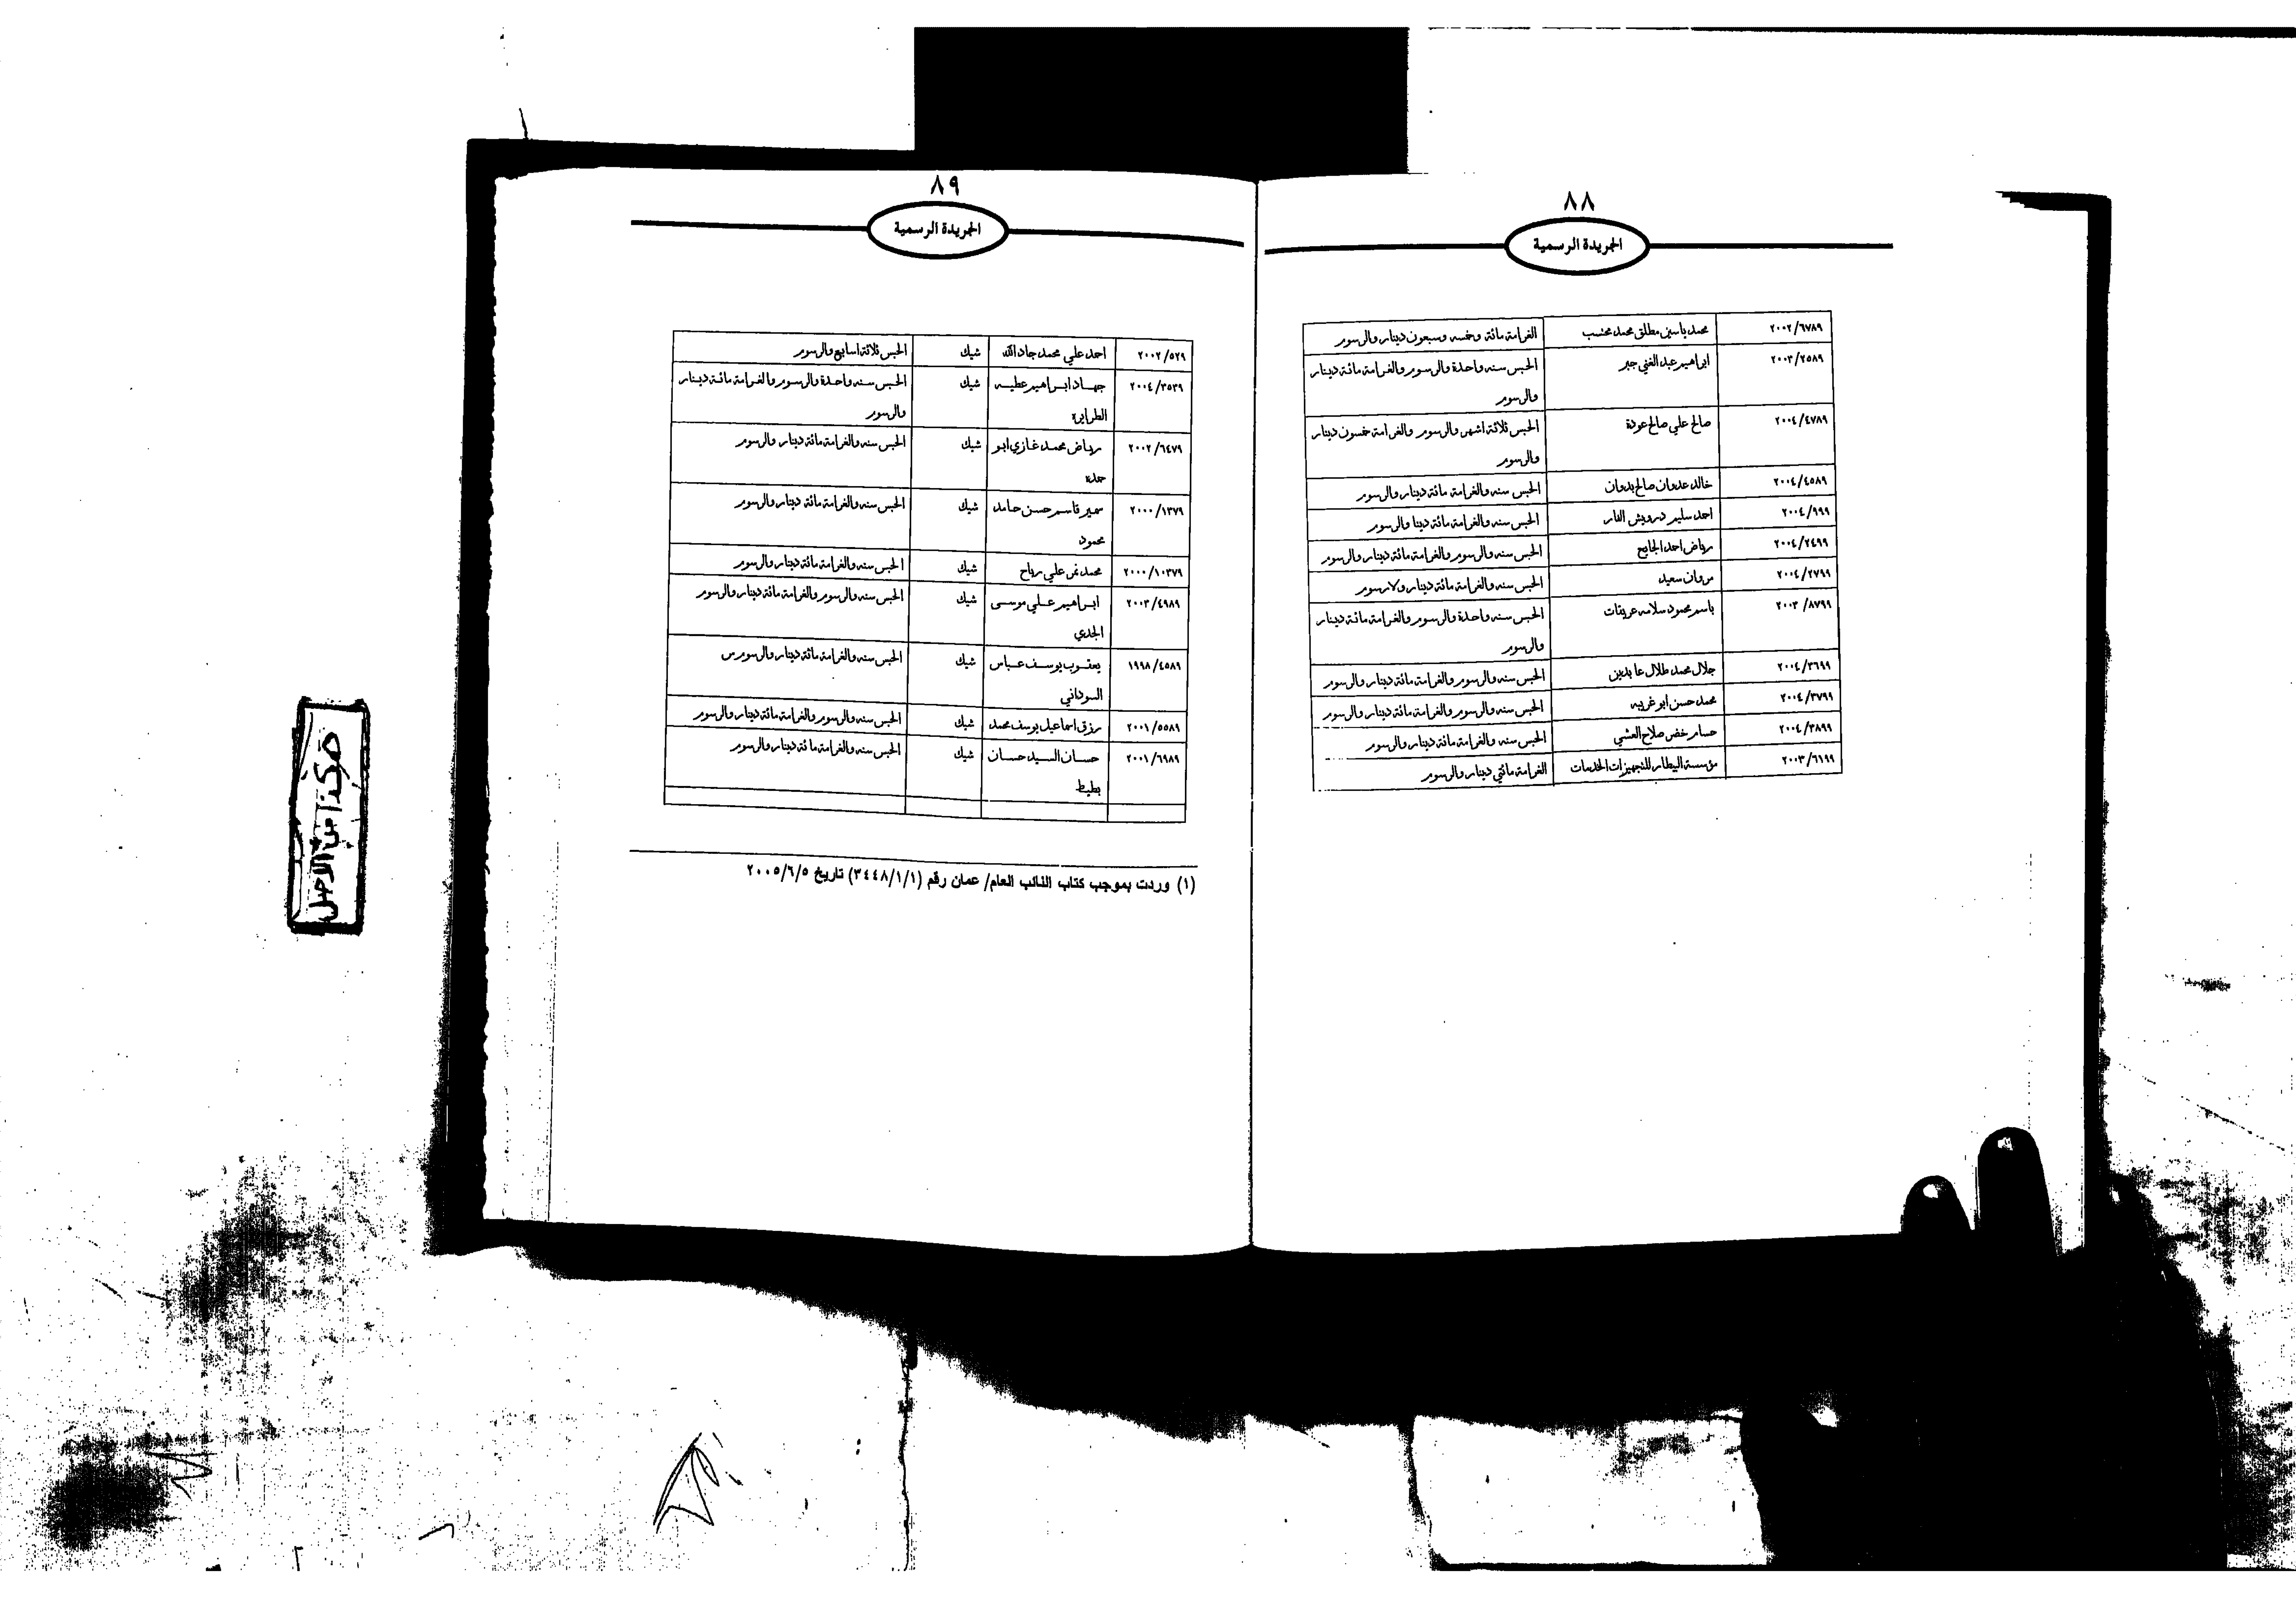 ٨٨
الجريدة الرسمية
٢٠٠٢/٦٧٨٩ محمد ياسين مطلق محمد محتسب الغرامة مائة وخمسه وسبعون دينار والرسوم
٢٠٠٣/٢٥٨٩ ابراهيم عبد الغني جبر الحبس سنه واحدة والرسوم والغرامة مائة دينار
والرسوم
٢٠٠٤/٤٧٨٩ صالح علي صالح عودة الحبس ثلاثة اشهر والرسوم والغرامة خمسون دينار
والرسوم
٢٠٠٤/٤٥٨٩ خالد عدوان صالح بدوان الحبس سنه والغرامة مائة دينار والرسوم
٢٠٠٤/٩٩٩ احمد سليم درويش الفار الحبس سنه والغرامة مائة دينا والرسوم
٢٠٠٤/٢٤٩٩ رياض احمد الجامع الحبس سنه والرسوم والغرامة مائة دينار والرسوم
٢٠٠٤/٢٧٩٩ مروان سعيد الحبس سنه والغرامة مائة دينار ولارسوم
٢٠٠٣/٨٧٩٩ باسم محمود سلامه عريقات الحبس سنه واحدة والرسوم والغرامة مائة دينار
والرسوم
٢٠٠٤/٣٦٩٩ جلال محمد طلال عابدين الحبس سنه والرسوم والغرامة مائة دينار والرسوم
٢٠٠٤/٣٧٩٩ محمد حسن ابو غريبه الحبس سنه والرسوم والغرامة مائة دينار والرسوم
٢٠٠٤/٣٨٩٩ حسام خضر صلاح العشي الحبس سنه والغرامة مائة دينار والرسوم
٢٠٠٣/٦١٩٩ مؤسسة البيطار للتجهيزات الخدمات الغرامة مائتي دينار والرسوم
٨٩
الجريدة الرسمية
٢٠٠٢/٥٢٩ احمد علي محمد جاد الله شيك الحبس ثلاثة اسابيع والرسوم
٢٠٠٤/٣٥٣٩ جهاد ابراهيم عطيه شيك الحبس سنه واحدة والرسوم والغرامة مائة دينار
الطرايره والرسوم
٢٠٠٢/٦٤٧٩ رياض محمد غازي ابو شيك الحبس سنه والغرامة مائة دينار والرسوم
حمده
٢٠٠٠/١٣٧٩ سمير قاسم حسن حامد شيك الحبس سنه والغرامة مائة دينار والرسوم
محمود
٢٠٠٠/١٠٣٧٩ محمد نمر علي رباح شيك الحبس سنه والغرامة مائة دينار والرسوم
٢٠٠٣/٤٩٨٩ ابراهيم علي موسى شيك الحبس سنه والرسوم والغرامة مائة دينار والرسوم
الجدي
١٩٩٨/٤٥٨٩ يعقوب يوسف عباس شيك الحبس سنه والغرامة مائة دينار والرسوم س
السوداني
٢٠٠١/٥٥٨٩ رزق اسماعيل يوسف محمد شيك الحبس سنه والرسوم والغرامة مائة دينار والرسوم
٢٠٠١/٦٩٨٩ حسان السيد حسان شيك الحبس سنه والغرامة مائة دينار والرسوم
بطيط
(١) وردت بموجب كتاب النائب العام/ عمان رقم (٣٤٤٨/١/١) تاريخ ٢٠٠٥/٦/٥
هكذا من الاصل